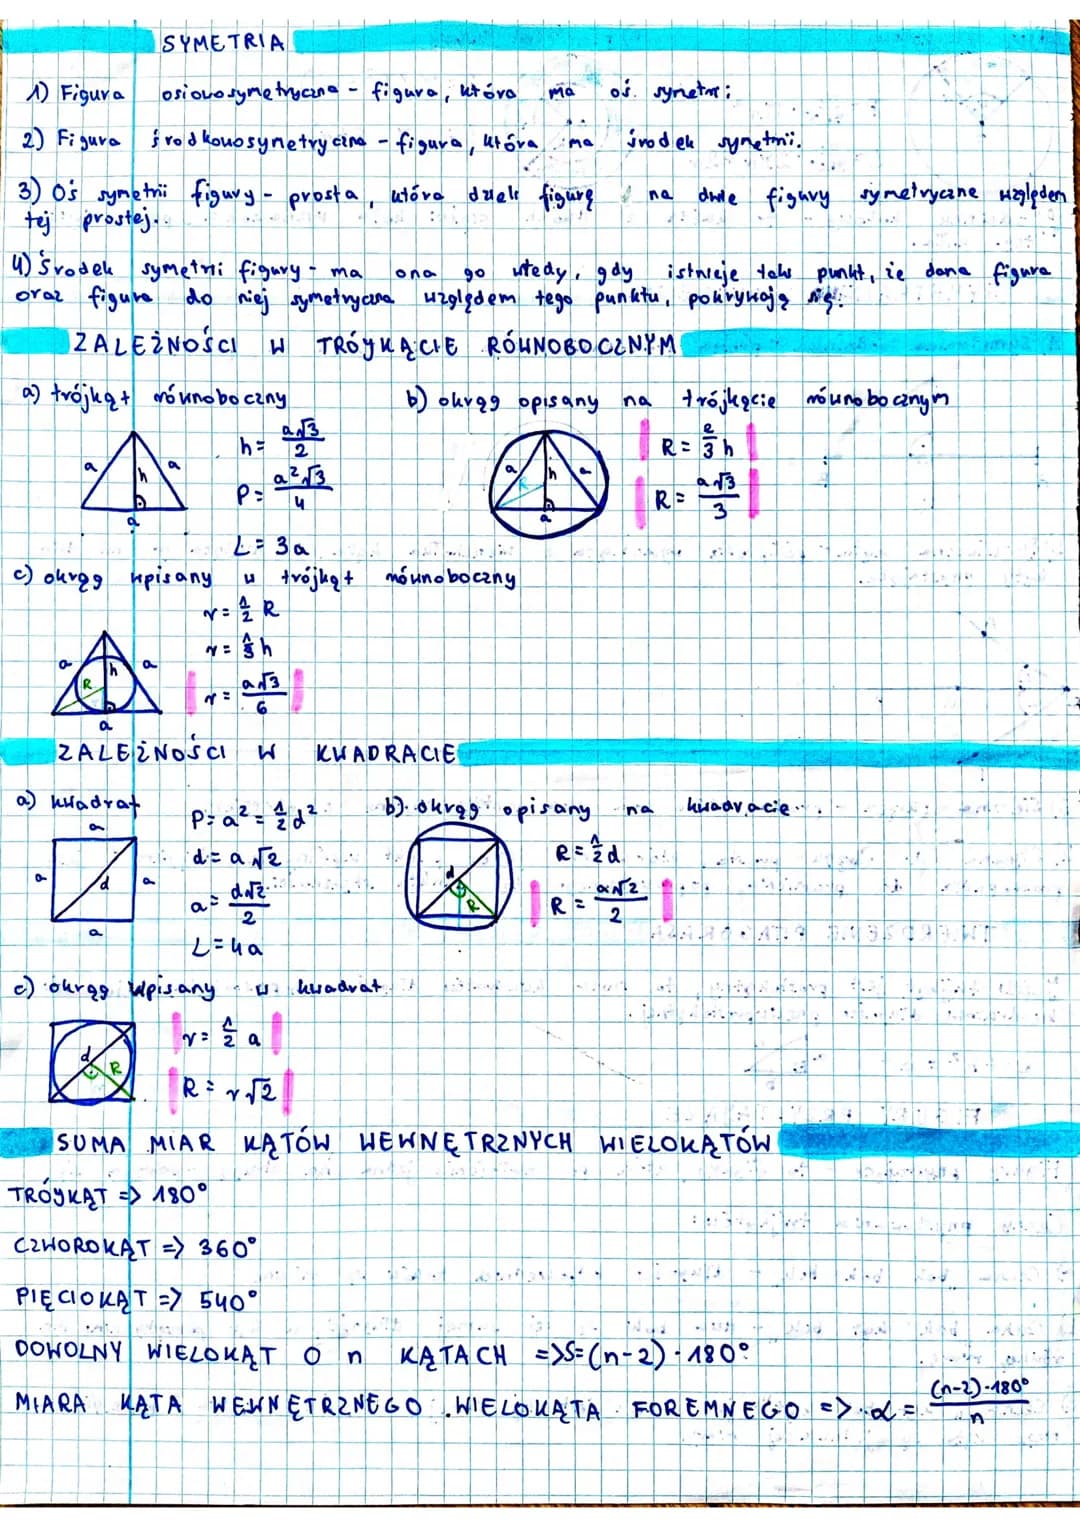 SYMETRIA
1) Figura osiowosymetryczna - figura, która ma oś symetrii
2) Figura środkowosymetryczna - figura, która ma środek symetrii.
3) Oś symetrii figury - prosta, która dzieli figurę na dwie figury symetryczne względem
tej prostej.
4) Środek symetrii figury - ma ona go wtedy, gdy istnieje taki punkt, że dana figura
oraz figura do niej symetryczna względem tego punktu, pokrywają się.
ZALEŻNOŚCI W TRÓJKĄCIE RÓWNOBOCZNYM
a) trójkąt równoboczny
h = a√3/2
P = a²√3/4
L = 3a
a a h a
b) okrąg opisany na trójkącie równobocznym
R = 2/3 h
R = a√3/3
a h a R a
c) okrąg wpisany w trójkąt równoboczny
r = 1/2 R
r = 1/3 h
r = a√3/6
a h a R a
ZALEŻNOŚCI W KWADRACIE
a) kwadrat
P = a² = 1/2 d²
d = a√2
a = d√2/2
L = 4a
a a d a a
b) okrąg opisany na kwadracie
R = 1/2 d
R = a√2/2
d R
c) okrąg wpisany w kwadrat
r = 1/2 a
R = r√2
d R
SUMA MIAR KĄTÓW WEWNĘTRZNYCH WIELOKĄTÓW
TRÓJKĄT => 180°
CZWOROKĄT => 360°
PIĘCIOKĄT => 540°
DOWOLNY WIELOKĄT O n KĄTACH => S = (n-2) · 180°
MIARA KĄTA WEWNĘTRZNEGO WIELOKĄTA FOREMNEGO => α = (n-2)·180°/n